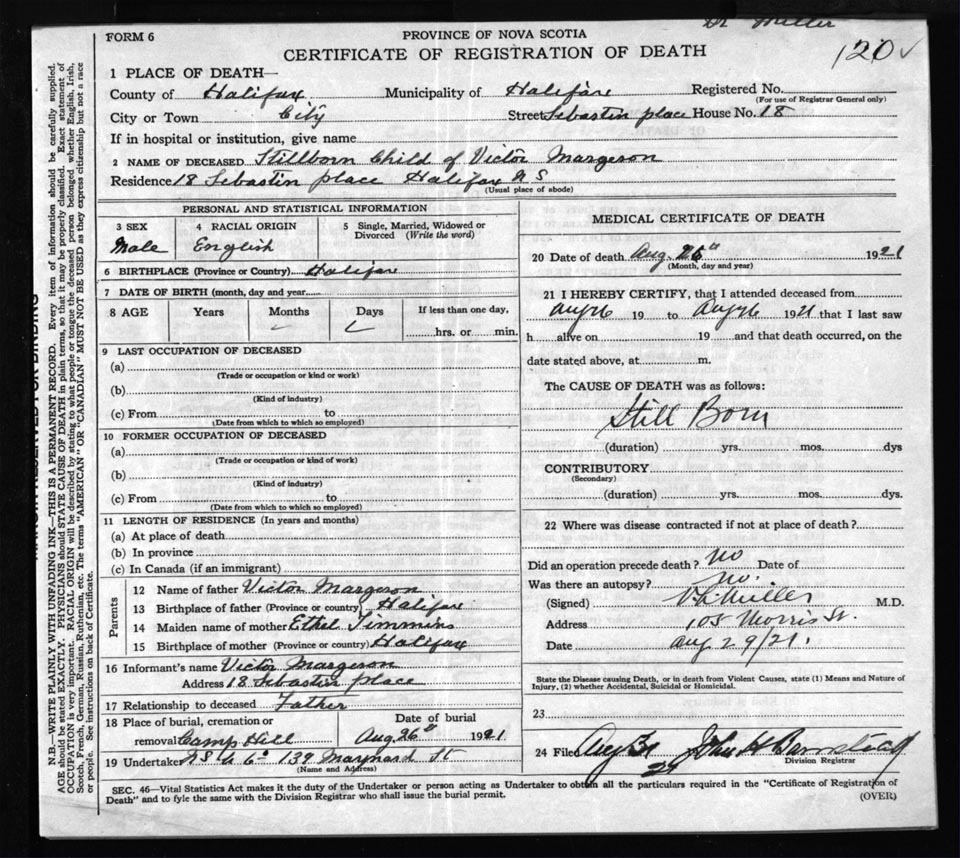 Dr Miller
FORM 6
PROVINCE OF NOVA SCOTIA
CERTIFICATE OF REGISTRATION OF DEATH
120 ✓
1 PLACE OF DEATH—
County of Halifax Municipality of Halifax Registered No.
(For use of Registrar General only)
City or Town City Street Sebastin place House No. 18
If in hospital or institution, give name
2 NAME OF DECEASED Stillborn Child of Victor Margeson
Residence 18 Sebastin place Halifax N S
(Usual place of abode)
PERSONAL AND STATISTICAL INFORMATION
3 SEX 4 RACIAL ORIGIN 5 Single, Married, Widowed or Divorced (Write the word)
Male English
6 BIRTHPLACE (Province or Country) Halifax
7 DATE OF BIRTH (month, day and year
8 AGE Years Months Days If less than one day,
hrs. or min.
9 LAST OCCUPATION OF DECEASED
(a)
(Trade or occupation or kind or work)
(b)
(Kind of industry)
(c) From to
(Date from which to which so employed)
10 FORMER OCCUPATION OF DECEASED
(a)
(Trade or occupation or kind of work)
(b)
(Kind of industry)
(c) From to
(Date from which to which so employed)
11 LENGTH OF RESIDENCE (In years and months)
(a) At place of death
(b) In province
(c) In Canada (if an immigrant)
Parents
12 Name of father Victor Margeson
13 Birthplace of father (Province or country) Halifax
14 Maiden name of mother Ethel Timmins
15 Birthplace of mother (Province or country) Halifax
16 Informant's name Victor Margeson
Address 18 Sebastin place
17 Relationship to deceased Father
18 Place of burial, cremation or removal Camp Hill
Date of burial
Aug 26th 1921
19 Undertaker 139 Maynard St
(Name and Address)
MEDICAL CERTIFICATE OF DEATH
20 Date of death Aug. 26th 1921
(Month, day and year)
21 I HEREBY CERTIFY, that I attended deceased from
Aug 26 19 to Aug 26 1921 that I last saw
h alive on 19 and that death occurred, on the
date stated above, at m.
The CAUSE OF DEATH was as follows:
Still Born
(duration) yrs. mos. dys
CONTRIBUTORY
(Secondary)
(duration) yrs. mos. dys.
22 Where was disease contracted if not at place of death?
Did an operation precede death? No Date of
Was there an autopsy? no.
(Signed) Miller M.D.
Address 105 Morris St.
Date Aug 29/21.
State the Disease causing Death, or in death from Violent Causes, state (1) Means and Nature of
Injury, (2) whether Accidental, Suicidal or Homicidal.
23
24 Filed Aug 31 21 John H Barnstead
Division Registrar
SEC. 46—Vital Statistics Act makes it the duty of the Undertaker or person acting as Undertaker to obtain all the particulars required in the "Certificate of Registration of
Death" and to fyle the same with the Division Registrar who shall issue the burial permit.
(OVER)
N.B.—WRITE PLAINLY WITH UNFADING INK—THIS IS A PERMANENT RECORD. Every item of information should be carefully supplied.
AGE should be stated EXACTLY. PHYSICIANS should STATE CAUSE OF DEATH in plain terms, so that it may be properly classified. Exact statement of
OCCUPATION is very important. RACIAL ORIGIN will be described by stating to what people or tongue the deceased person belonged whether English, Irish,
Scotch, French, German, Russian, Ruthenian, etc. The terms "AMERICAN" OR "CANADIAN" MUST NOT BE USED as they express citizenship but not a race
or people. See instructions on back of Certificate.